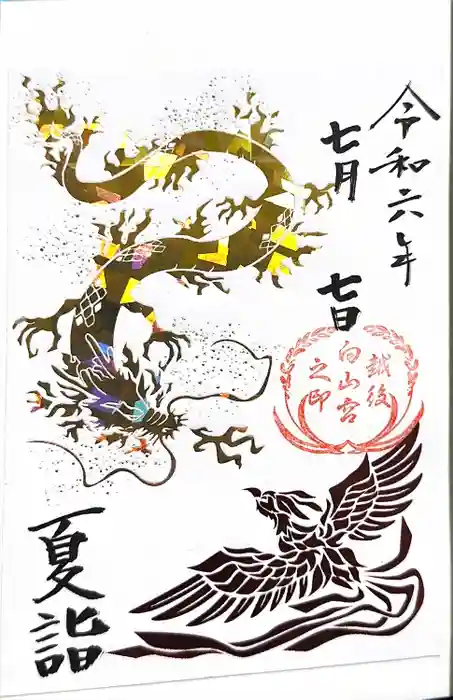 令和六年
七月 七日
越後
白山宮
之印
夏詣